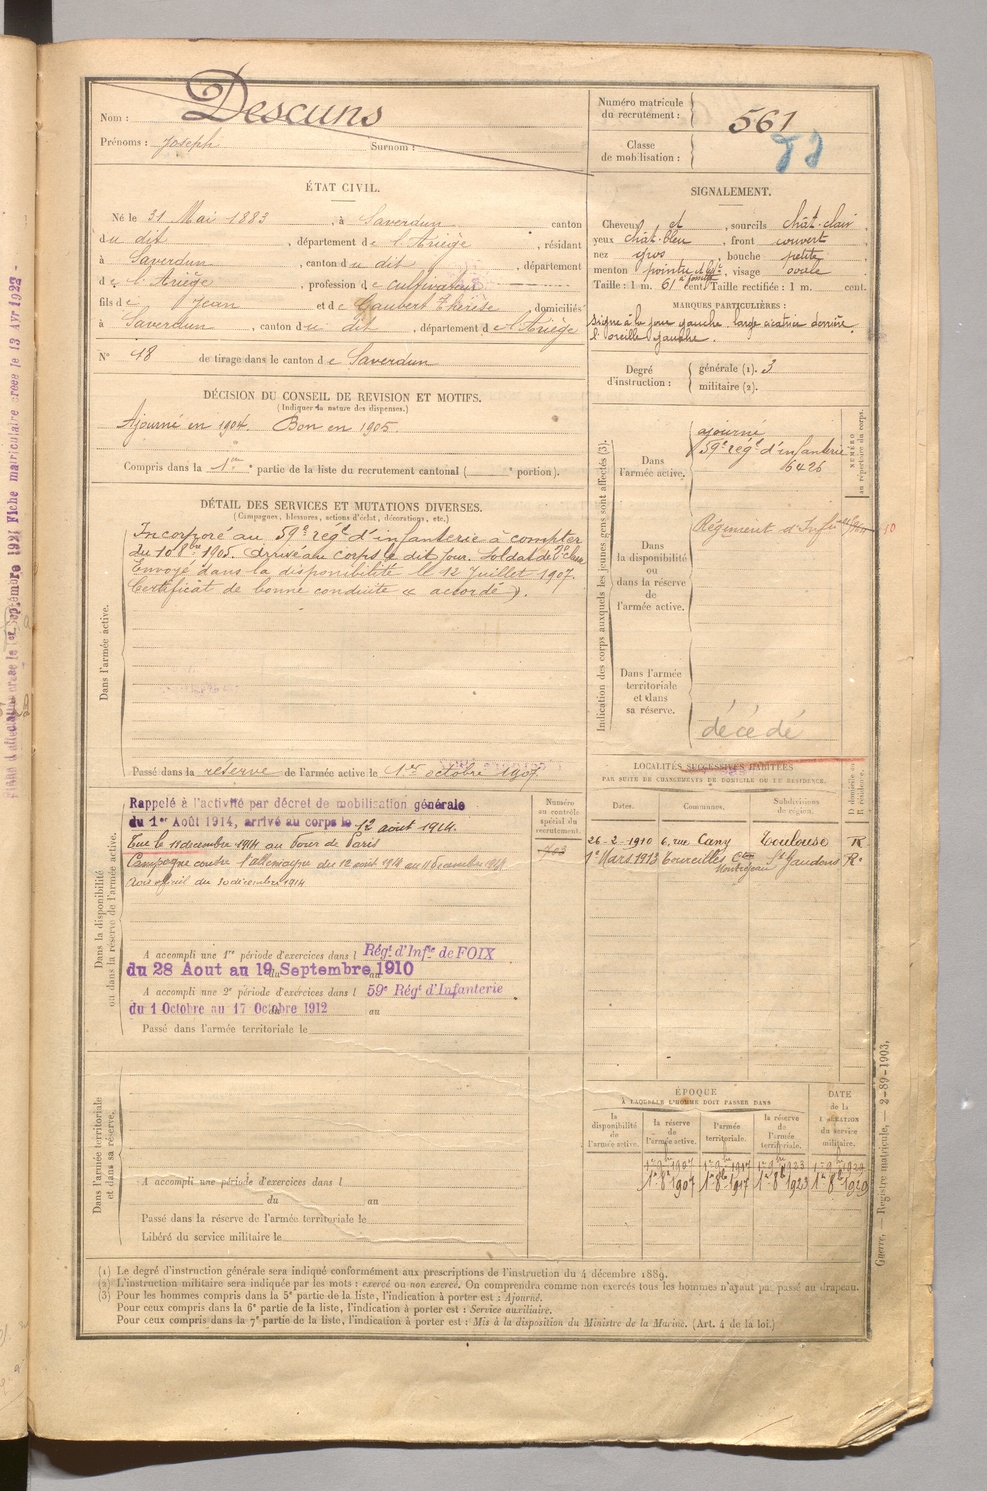 Nom : Descuns
Prénoms : Joseph Surnom :
Numéro matricule du recrutement : 561
Classe de mobilisation :
ÉTAT CIVIL.
Né le 31 Mai 1883, à Saverdun canton
du dit, département de l'Ariège, résidant
à Saverdun, canton du dit, département
de l'Ariège, profession de cultivateur
fils de Jean et de Gaubert Thérèse, domiciliés
à Saverdun, canton du dit, département de l'Ariège
N° 48 de tirage dans le canton de Saverdun
SIGNALEMENT.
Cheveux et, sourcils chât-clair
yeux chât-bleu, front couvert
nez gros, bouche petite
menton pointu, visage ovale
Taille : 1 m. 61 cent. Taille rectifiée : 1 m. cent.
MARQUES PARTICULIÈRES :
Signe à la joue gauche. large cicatrice derrière
l'oreille gauche.
Degré d'instruction : générale (1). 3
militaire (2).
DÉCISION DU CONSEIL DE REVISION ET MOTIFS.
(Indiquer la nature des dispenses.)
Ajourné en 1904. Bon en 1905.
Compris dans la 1re partie de la liste du recrutement cantonal ( e portion).
DÉTAIL DES SERVICES ET MUTATIONS DIVERSES.
(Campagnes, blessures, actions d'éclat, décorations, etc.)
Dans l'armée active.
Incorporé au 59e rég.t d'infanterie à compter
du 10 8bre 1905. Arrivé au corps le dit jour. Soldat de 2e classe
Envoyé dans la disponibilité le 12 Juillet 1907.
Certificat de bonne conduite « accordé ».
Passé dans la réserve de l'armée active le 1er octobre 1907.
Indication des corps auxquels les jeunes gens sont affectés (3).
NUMÉRO au répertoire du corps.
Dans l'armée active.
ajourné
59e rég.t d'infanterie
6426
Dans la disponibilité ou dans la réserve de l'armée active.
Régiment d'Inf.rie
Dans l'armée territoriale et dans sa réserve.
décédé
Dans la disponibilité ou dans la réserve de l'armée active.
Rappelé à l'activité par décret de mobilisation générale
du 1er Août 1914, arrivé au corps le 12 août 1914.
Tué le 11 décembre 1914 au Four de Paris
Campagne contre l'allemagne du 12 août 1914 au 11 Décembre 1914
avis officiel du 30 décembre 1914
A accompli une 1re période d'exercices dans l Rég.t d'Inf.ie de FOIX
du 28 Aout au 19 Septembre 1910
A accompli une 2e période d'exercices dans l 59e Rég.t d'Infanterie
du 1 Octobre au 17 Octobre 1912 au
Passé dans l'armée territoriale le
Numéro au contrôle spécial du recrutement.
LOCALITÉS SUCCESSIVES HABITÉES
PAR SUITE DE CHANGEMENTS DE DOMICILE OU DE RÉSIDENCE.
Dates. Communes. Subdivisions de région. D domicile ou R résidence.
26-2-1910 6, rue Cany Toulouse R
1er Mars 1913 Con Montréjeau St Gaudens R.
Dans l'armée territoriale et dans sa réserve.
A accompli une période d'exercices dans l
du au
Passé dans la réserve de l'armée territoriale le
Libéré du service militaire le
ÉPOQUE
À LAQUELLE L'HOMME DOIT PASSER DANS
la disponibilité de l'armée active.
la réserve de l'armée active.
l'armée territoriale.
la réserve de l'armée territoriale.
DATE de la LIBÉRATION du service militaire.
1er 9bre 1907 1er 9bre 1917 1er 9bre 1923 1er 9bre 1929
1er 8bre 1907 1er 8bre 1917 1er 8bre 1923 1er 8bre 1929
(1) Le degré d'instruction générale sera indiqué conformément aux prescriptions de l'instruction du 4 décembre 1889.
(2) L'instruction militaire sera indiquée par les mots : exercé ou non exercé. On comprendra comme non exercés tous les hommes n'ayant pas passé au drapeau.
(3) Pour les hommes compris dans la 5e partie de la liste, l'indication à porter est : Ajourné.
Pour ceux compris dans la 6e partie de la liste, l'indication à porter est : Service auxiliaire.
Pour ceux compris dans la 7e partie de la liste, l'indication à porter est : Mis à la disposition du Ministre de la Marine. (Art. 4 de la loi.)
Guerre. — Registre matricule. — 2-89-1903.
Fiche matriculaire créée le 13 Avr 1922 -